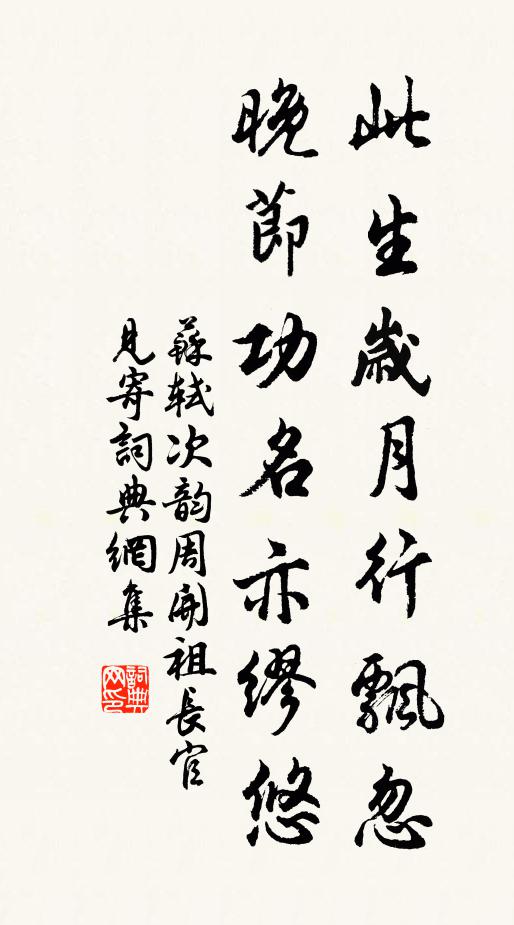 此生歲月行飄忽
晚節功名亦繆悠
蘇軾次韵周開祖長官
見寄詞典網集
詞典
网印